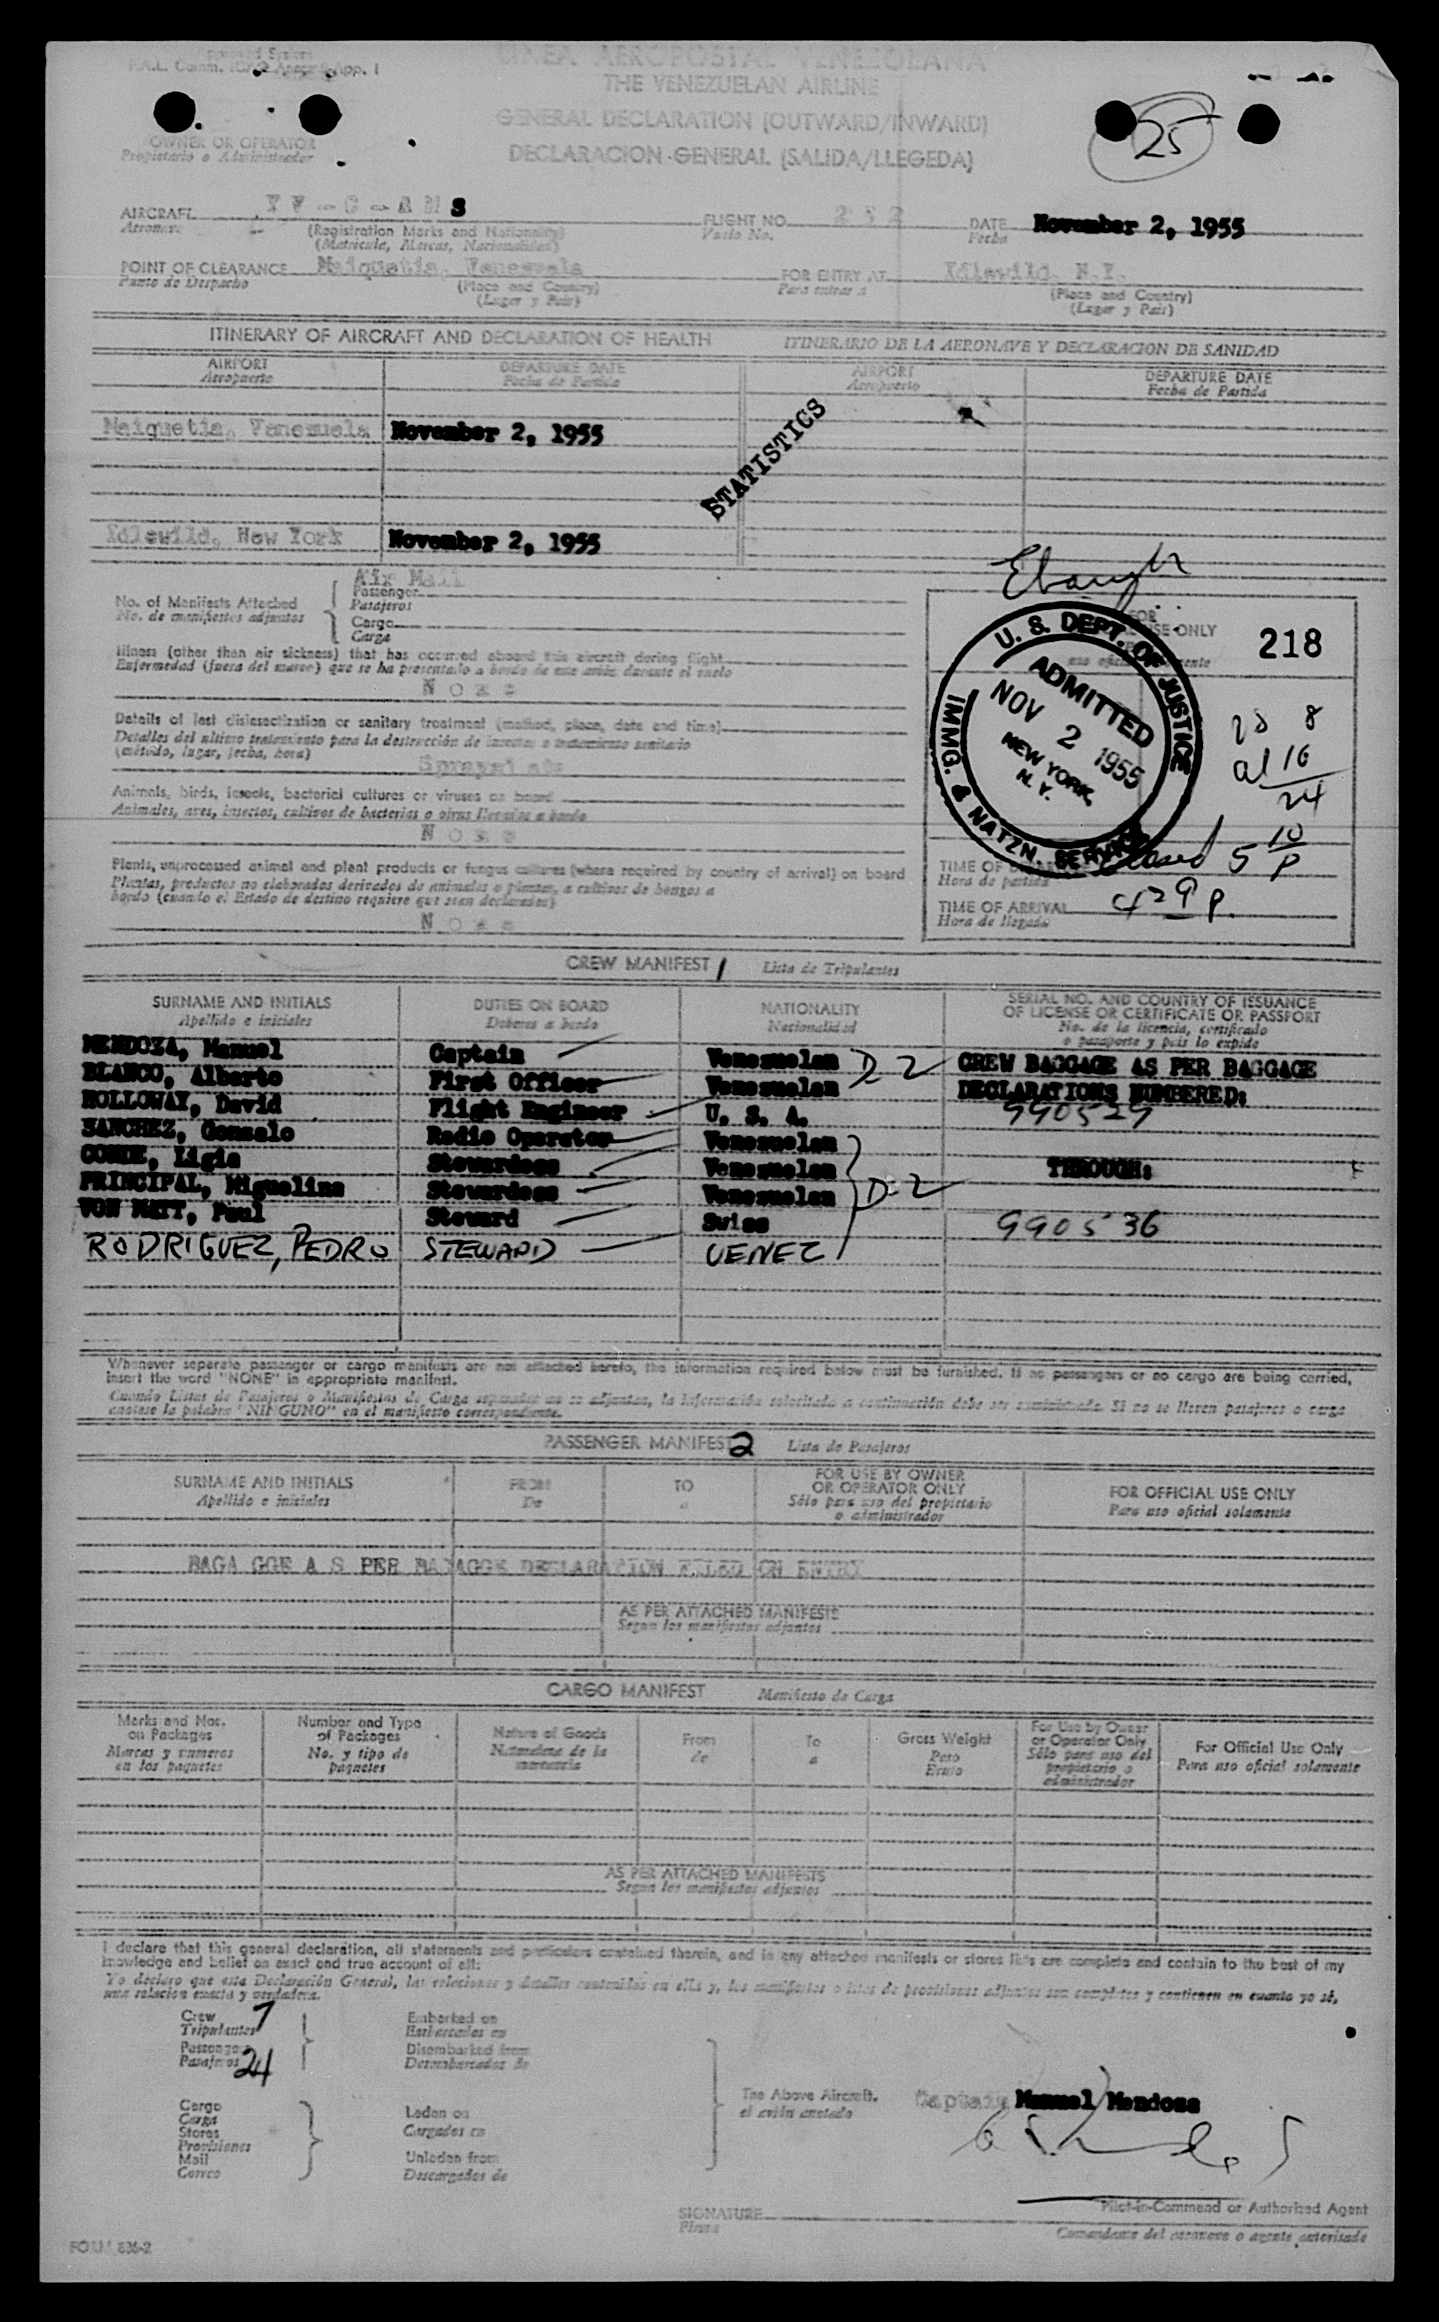 App. 1
LINEA AEROPOSTAL VENEZOLANA
THE VENEZUELAN AIRLINE
GENERAL DECLARATION (OUTWARD/INWARD)
DECLARACION GENERAL (SALIDA/LLEGEDA)
25
OWNER OR OPERATOR
Propietario o Administrador
AIRCRAFT
Aeronave
(Registration Marks and Nationality)
(Matricula, Marcas, Nacionalidad)
FLIGHT NO. 252
Vuelo No.
DATE November 2, 1955
Fecha
POINT OF CLEARANCE Maiquetia, Venezuela
Punto de Despacho
(Place and Country)
(Lugar y Pais)
FOR ENTRY AT Idlewild, N.Y.
Para entrar a
(Place and Country)
(Lugar y Pais)
ITINERARY OF AIRCRAFT AND DECLARATION OF HEALTH ITINERARIO DE LA AERONAVE Y DECLARACION DE SANIDAD
AIRPORT DEPARTURE DATE AIRPORT DEPARTURE DATE
Aeropuerto Fecha de Partida Aeropuerto Fecha de Partida
Maiquetia, Venezuela November 2, 1955
STATISTICS
Idlewild, New York November 2, 1955
Air Mail
No. of Manifests Attached
No. de manifiestos adjuntos
Passenger
Pasajeros
Cargo
Carga
Illness (other than air sickness) that has occurred aboard this aircraft during flight
Enfermedad (fuera del mareo) que se ha presentado a bordo de este avión durante el vuelo
None
Details of last disinsectization or sanitary treatment (method, place, date and time)
Detalles del ultimo tratamiento para la destrucción de insectos o tratamiento sanitario
(método, lugar, fecha, hora)
Animals, birds, insects, bacterial cultures or viruses on board
Animales, aves, insectos, cultivos de bacterias o virus llevados a bordo
None
Plants, unprocessed animal and plant products or fungus cultures (where required by country of arrival) on board
Plantas, productos no elaborados derivados de animales o plantas, o cultivos de hongos a
bordo (cuando el Estado de destino requiere que sean declarados)
None
218
U. S. DEPT. OF JUSTICE
ADMITTED
NOV 2 1955
NEW YORK,
N. Y.
IMMG. & NATZN. SERVICE
8
al 16
24
closed 5 10 P
TIME OF
Hora de partida
TIME OF ARRIVAL 4 29 P.
Hora de llegada
CREW MANIFEST 1 Lista de Tripulantes
SURNAME AND INITIALS DUTIES ON BOARD NATIONALITY SERIAL NO. AND COUNTRY OF ISSUANCE
OF LICENSE OR CERTIFICATE OR PASSPORT
Apellido e iniciales Deberes a bordo Nacionalidad No. de la licencia, certificado
o pasaporte y país lo expide
MENDOZA, Manuel Captain Venezuelan D-2 CREW BAGGAGE AS PER BAGGAGE
BLANCO, Alberto First Officer Venezuelan DECLARATIONS NUMBERED:
HOLLOWAY, David Flight Engineer U. S. A. 990529
SANCHEZ, Gonzalo Radio Operator Venezuelan
CONDE, Ligia Stewardess Venezuelan THROUGH:
PRINCIPAL, Miguelina Stewardess Venezuelan D-2
VON MATT, Paul Steward Swiss 990536
RODRIGUEZ, PEDRO STEWARD VENEZ
Whenever separate passenger or cargo manifests are not attached hereto, the information required below must be furnished. If no passengers or no cargo are being carried,
insert the word "NONE" in appropriate manifest.
Cuando Listas de Pasajeros o Manifiestos de Carga separados no se adjuntan, la información solicitada a continuación debe ser suministrada. Si no se lleven pasajeros o carga
anótese la palabra "NINGUNO" en el manifiesto correspondiente.
PASSENGER MANIFEST 2 Lista de Pasajeros
SURNAME AND INITIALS FROM TO FOR USE BY OWNER
OR OPERATOR ONLY FOR OFFICIAL USE ONLY
Apellido e iniciales De a Sólo para uso del propietario
o administrador Para uso oficial solamente
BAGA GGE A S PER BAGAGGE DECLARATION FILED ON ENTRY
AS PER ATTACHED MANIFESTS
Segun los manifiestos adjuntos
CARGO MANIFEST Manifiesto de Carga
Marks and Nos.
on Packages
Marcas y numeros
en los paquetes
Number and Type
of Packages
No. y tipo de
paquetes
Nature of Goods
Naturaleza de la
mercancia
From
de
To
a
Gross Weight
Peso
Bruto
For Use by Owner
or Operator Only
Sólo para uso del
propietario o
administrador
For Official Use Only
Para uso oficial solamente
AS PER ATTACHED MANIFESTS
Segun los manifiestos adjuntos
I declare that this general declaration, all statements and particulars contained therein, and in any attached manifests or stores lists are complete and contain to the best of my
knowledge and belief an exact and true account of all:
Yo declaro que esta Declaración General, las relaciones y detalles contenidos en ella y, los manifiestos o listas de provisiones adjuntos son completos y contienen en cuanto yo sé,
una relacion exacta y verdadera.
Crew 7
Tripulantes
Passengers
Pasajeros 24
Embarked on
Embarcados en
Disembarked from
Desembarcados de
Cargo
Carga
Stores
Provisiones
Mail
Correo
Laden on
Cargados en
Unladen from
Descargados de
The Above Aircraft.
el avión anotado
Captain Manuel Mendoza
SIGNATURE
Firma
Pilot-in-Command or Authorized Agent
Comandante del aeronave o agente autorizado
FORM 836-2